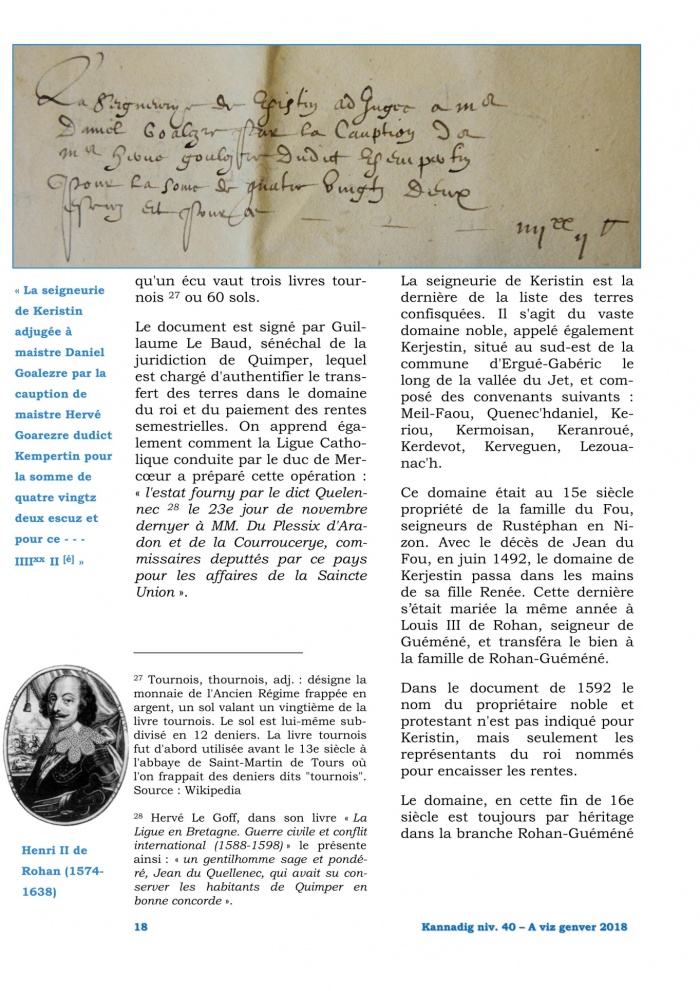 La Seigneurye de Kjristin adJugee a me
Daniel Goalezre par la Cauption De
me herue goalezre Dudict Kempertin
Pour la some de quatre vingtz Deux
escuz et pour ce _ _ _
iiiixx ii
« La seigneurie
de Keristin
adjugée à
maistre Daniel
Goalezre par la
cauption de
maistre Hervé
Goarezre dudict
Kempertin pour
la somme de
quatre vingtz
deux escuz et
pour ce - - -
IIIIxx II [é] »
Henri II de
Rohan (1574-
1638)
qu'un écu vaut trois livres tour-
nois 27 ou 60 sols.
Le document est signé par Guil-
laume Le Baud, sénéchal de la
juridiction de Quimper, lequel
est chargé d'authentifier le trans-
fert des terres dans le domaine
du roi et du paiement des rentes
semestrielles. On apprend éga-
lement comment la Ligue Catho-
lique conduite par le duc de Mer-
cœur a préparé cette opération :
« l'estat fourny par le dict Quelen-
nec 28 le 23e jour de novembre
dernyer à MM. Du Plessix d'Ara-
don et de la Courroucerye, com-
missaires deputtés par ce pays
pour les affaires de la Saincte
Union ».
27 Tournois, thournois, adj. : désigne la
monnaie de l'Ancien Régime frappée en
argent, un sol valant un vingtième de la
livre tournois. Le sol est lui-même sub-
divisé en 12 deniers. La livre tournois
fut d'abord utilisée avant le 13e siècle à
l'abbaye de Saint-Martin de Tours où
l'on frappait des deniers dits "tournois".
Source : Wikipedia
28 Hervé Le Goff, dans son livre « La
Ligue en Bretagne. Guerre civile et conflit
international (1588-1598) » le présente
ainsi : « un gentilhomme sage et pondé-
ré, Jean du Quellenec, qui avait su con-
server les habitants de Quimper en
bonne concorde ».
La seigneurie de Keristin est la
dernière de la liste des terres
confisquées. Il s'agit du vaste
domaine noble, appelé également
Kerjestin, situé au sud-est de la
commune d'Ergué-Gabéric le
long de la vallée du Jet, et com-
posé des convenants suivants :
Meil-Faou, Quenec'hdaniel, Ke-
riou, Kermoisan, Keranroué,
Kerdevot, Kerveguen, Lezoua-
nac'h.
Ce domaine était au 15e siècle
propriété de la famille du Fou,
seigneurs de Rustéphan en Ni-
zon. Avec le décès de Jean du
Fou, en juin 1492, le domaine de
Kerjestin passa dans les mains
de sa fille Renée. Cette dernière
s'était mariée la même année à
Louis III de Rohan, seigneur de
Guéméné, et transféra le bien à
la famille de Rohan-Guéméné.
Dans le document de 1592 le
nom du propriétaire noble et
protestant n'est pas indiqué pour
Keristin, mais seulement les
représentants du roi nommés
pour encaisser les rentes.
Le domaine, en cette fin de 16e
siècle est toujours par héritage
dans la branche Rohan-Guéméné
18
Kannadig niv. 40 – A viz genver 2018